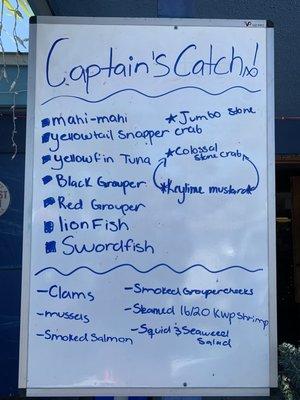 Captain's Catch!
mahi-mahi
★ Jumbo stone crab
yellowtail Snapper
yellowfin Tuna
★ Colossal stone crab
Black Grouper
★ Keylime mustard ★
Red Grouper
lion Fish
Swordfish
- Clams
- Smoked Grouper cheeks
- mussels
- Steamed 16/20 KWP Shrimp
- Smoked Salmon
- Squid & Seaweed Salad